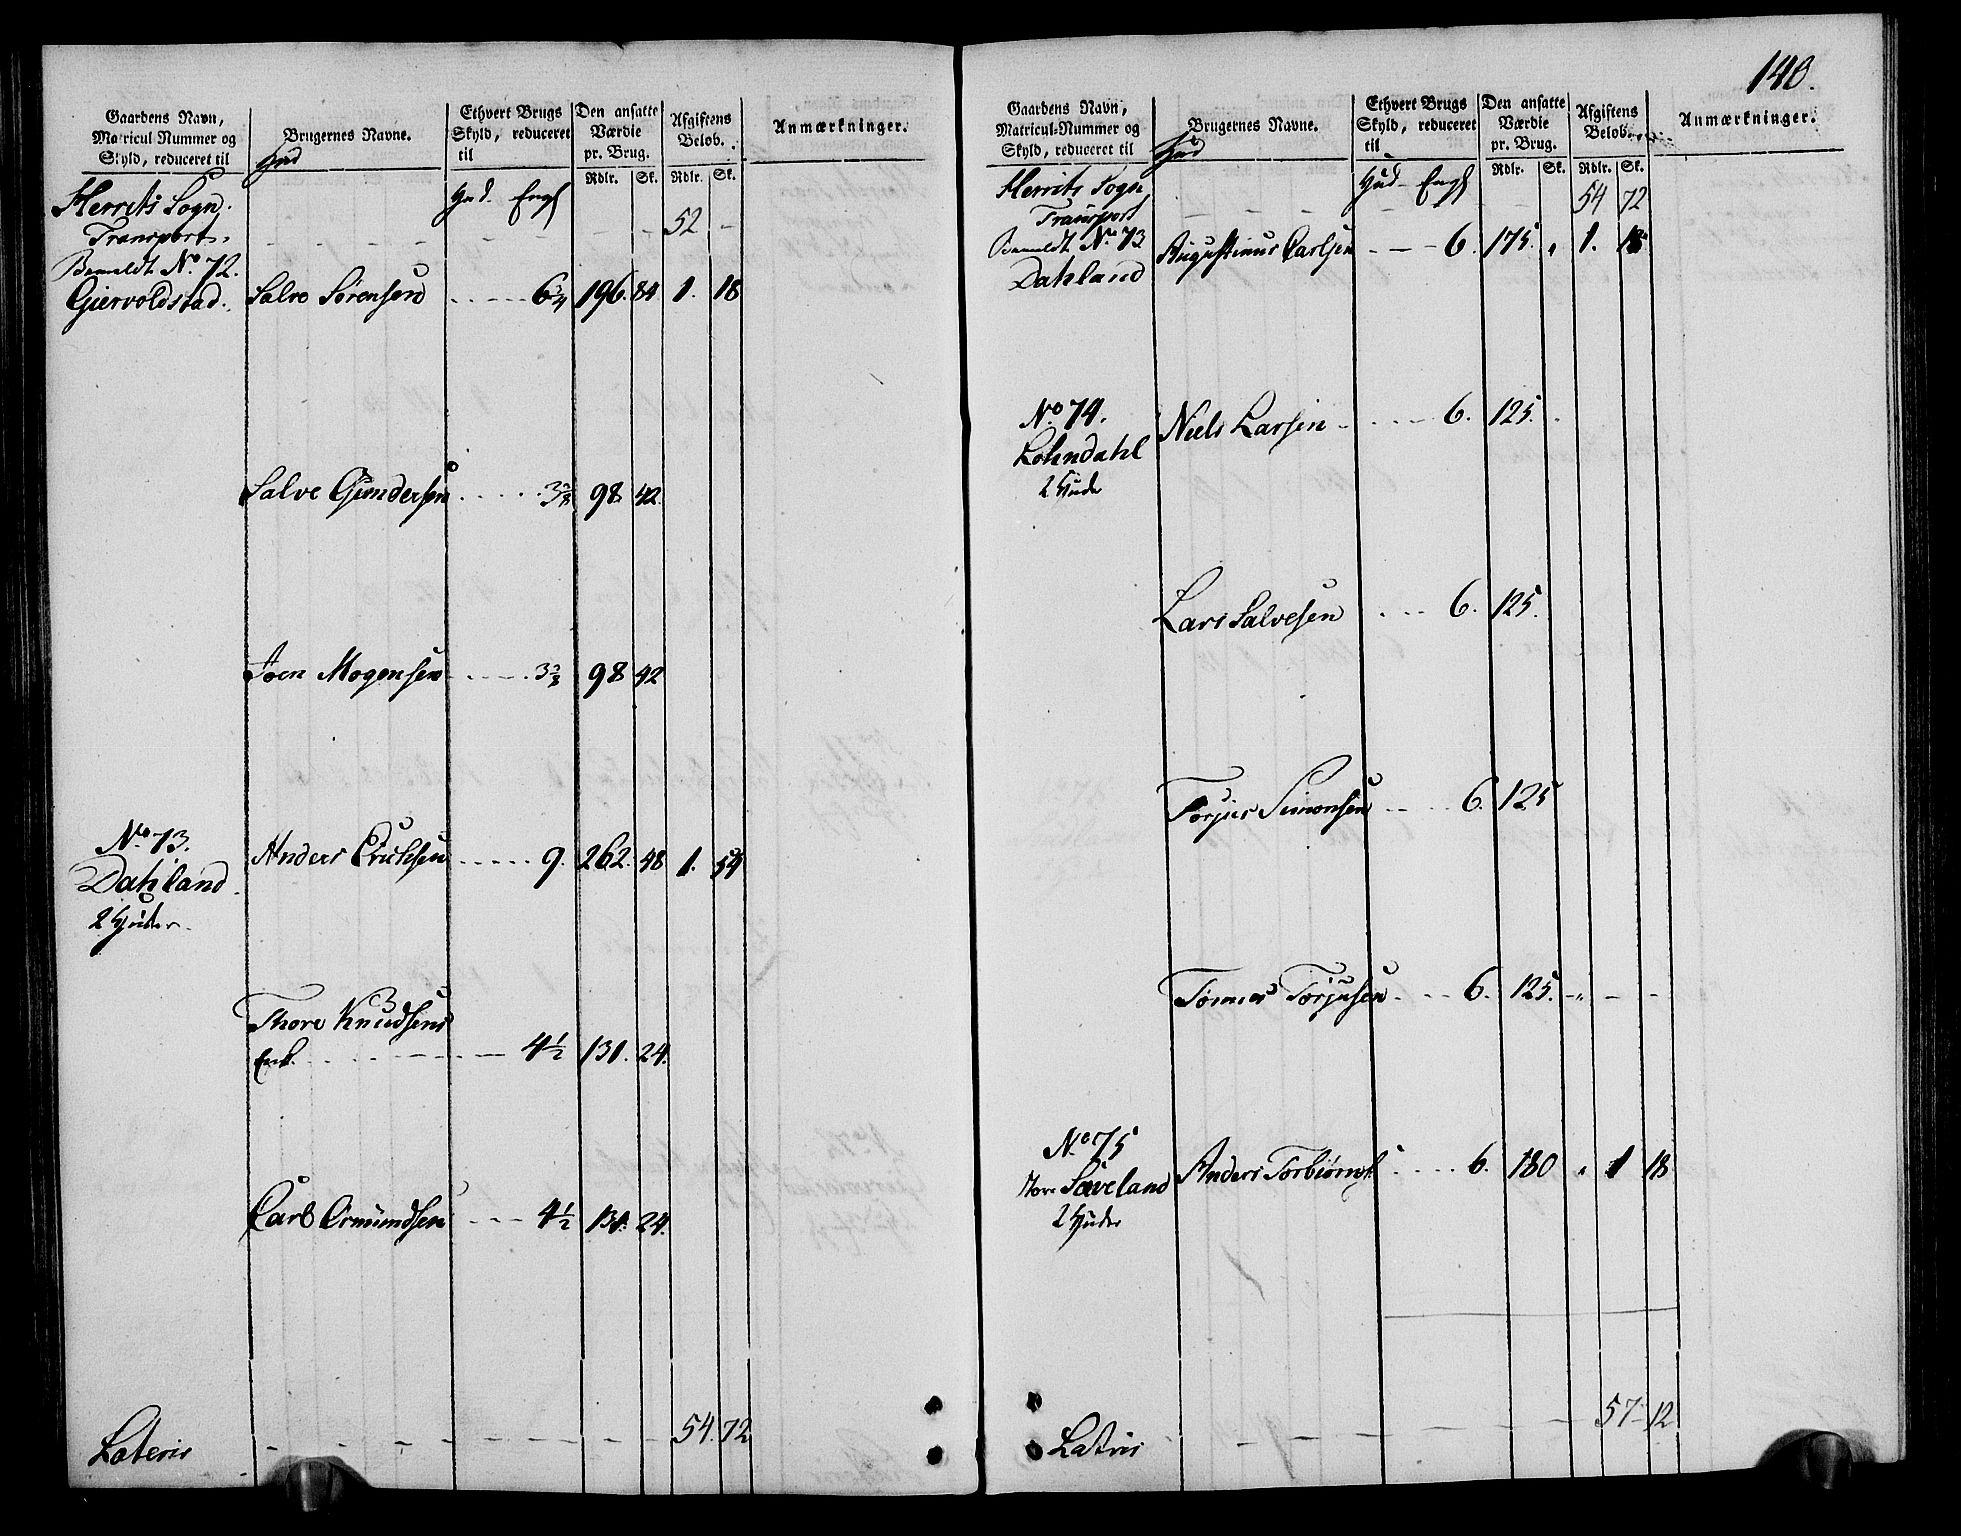 Gaardens Navn,
Matricul-Nummer og
Skyld, reduceret til
Hud
Brugernes Navne.
Ethvert Brugs
Skyld, reduceret
til
Den ansatte
Værdie
pr. Brug.
Afgiftens
Beløb.
Anmærkninger.
Rdlr. Sk. Rdlr. Sk.
Hud Engl
Herrets Sogn.
Transport. 52 -
Bemeldt No. 72.
Giervoldstad. Salve Sørensen 6 3/4 196. 84 1. 18
Salve Gundersen 3 3/8 98 42.
Joen Mogensen 3 3/8 98 42
No. 73.
Dahland Anders Erichsen 9. 262. 48 1. 54
2 Huder.
Thore Knudsens
Enk. 4 1/2 131. 24.
Carl Ormundsen 4 1/2 131. 24.
Lateris 54. 72
140.
Gaardens Navn,
Matricul-Nummer og
Skyld, reduceret til
Hud
Brugernes Navne.
Ethvert Brugs
Skyld, reduceret
til
Den ansatte
Værdie
pr. Brug.
Afgiftens
Beløb.
Anmærkninger.
Rdlr. Sk. Rdlr. Sk.
Hud Engl
Herrets Sogn
Transport 54 72
Bemeldt No. 73
Dahland Augustinus Carlsen 6. 175. " 1. 18
No. 74.
Lohndahl Niels Larsen 6. 125.
2 Huder
Lars Salvesen 6. 125.
Torjus Simonsen 6. 125
Tønnes Torjusen 6. 125. "
No. 75
Store Sæveland Anders Torbiørns. 6. 180 " 1 18
2 Huder
Lateris 57 12